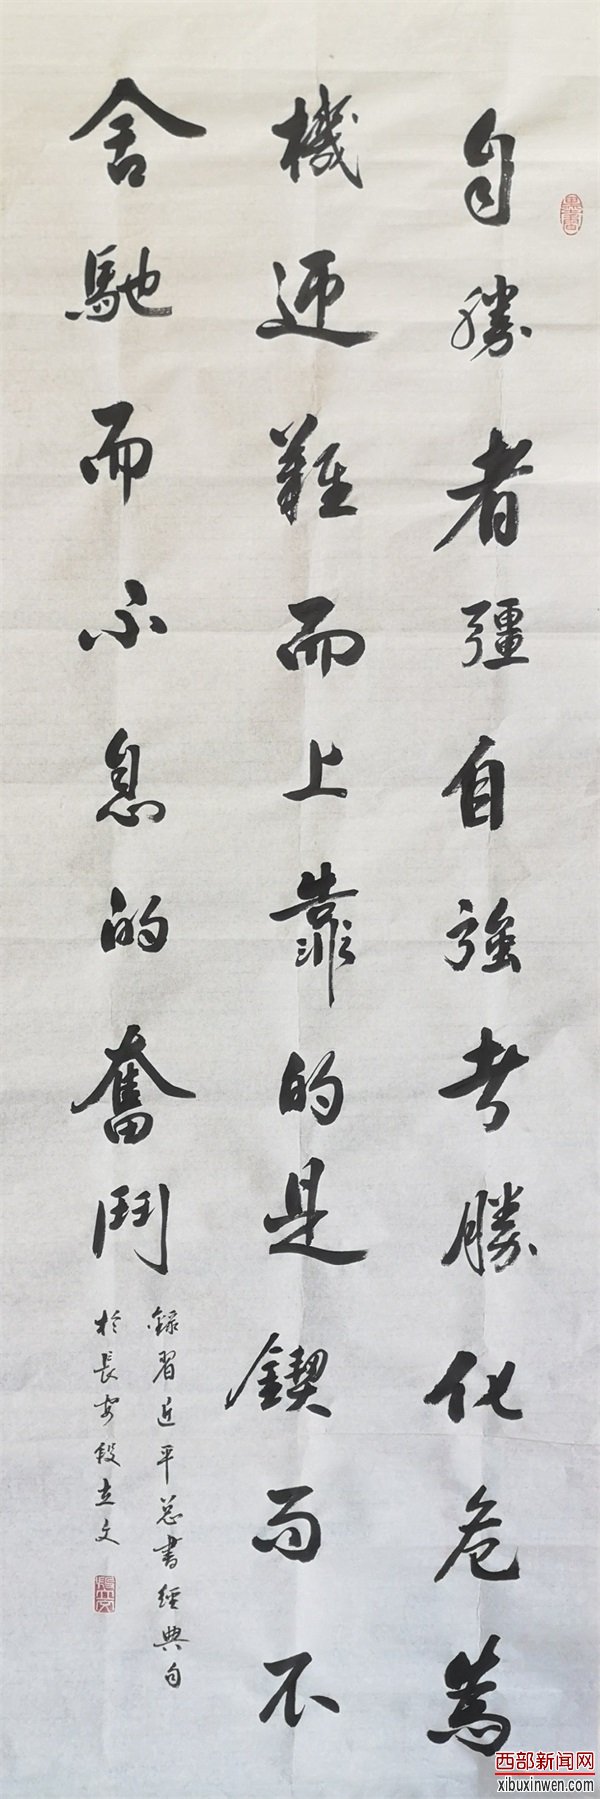 自勝者彊自強者勝化危為
機迎難而上靠的是鍥而不
舍馳而不息的奮鬥
錄習近平总書經典句
於長安段立文
西部新闻网
xibuxinwen.com